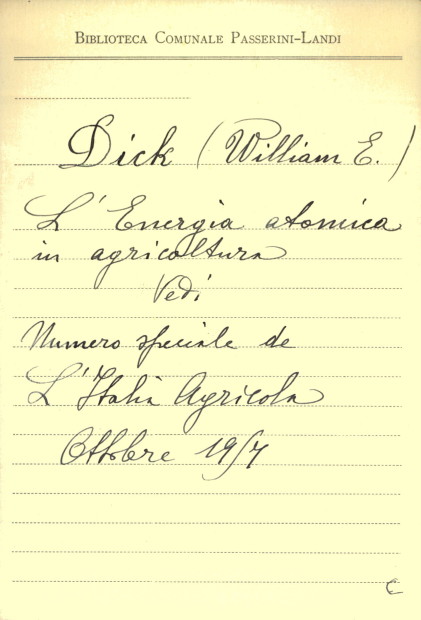 BIBLIOTECA COMUNALE PASSERINI-LANDI
Dick (William E.)
L'Energia atomica
in agricoltura
Vedi
Numero speciale de
L'Italia Agricola
Ottobre 1957
C